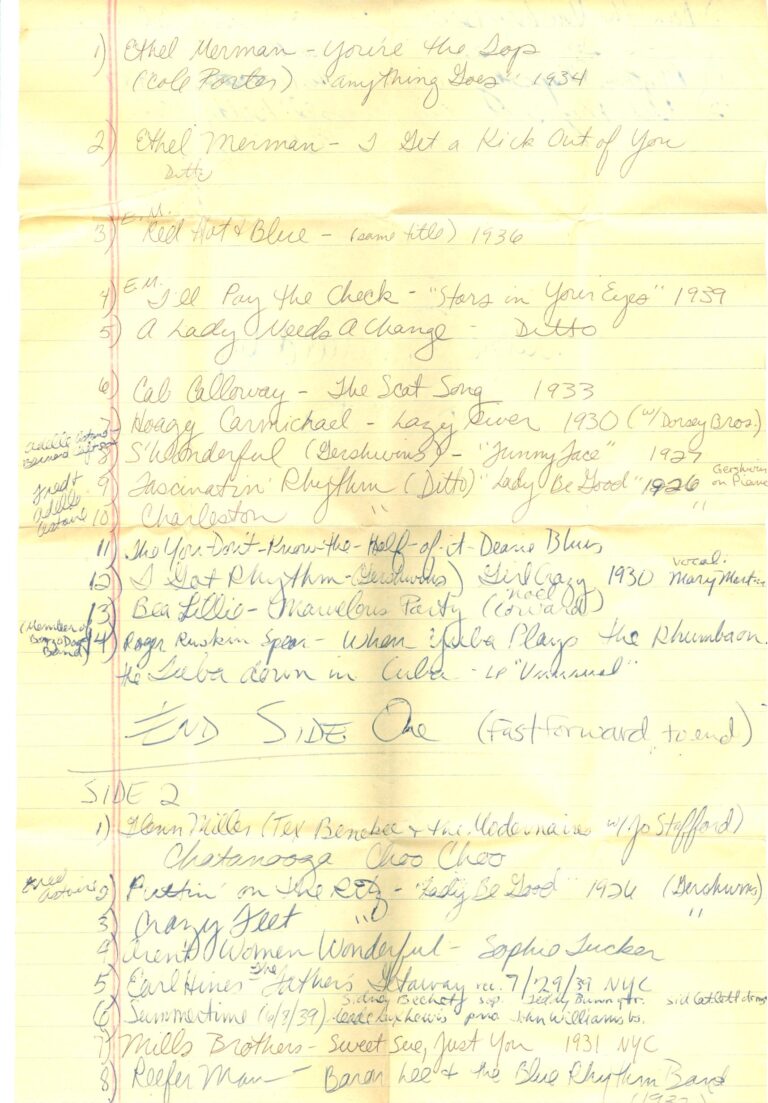 1) Ethel Merman - You're the Top
(Cole Porter) "Anything Goes" 1934
2) Ethel Merman - I Get a Kick Out of You
Ditto
E.M.
3) Red Hot & Blue - (same title) 1936
4) E.M. I'll Pay the Check - "Stars in Your Eyes" 1939
5) A Lady Needs A Change - Ditto
6) Cab Calloway - The Scat Song 1933
7) Hoagy Carmichael - Lazy River 1930 (w/ Dorsey Bros.)
Adelle Astaire
Bernard
8) S'Wonderful (Gershwins) - "Funny Face" 1927
Fred & Adelle Astaire
9) Fascinatin' Rhythm (Ditto) "Lady Be Good" 1926 Gershwin on Piano
10) Charleston " "
11) The You-Don't-Know-the-Half-of-it-Dearie Blues
12) I Got Rhythm - (Gershwins) Girl Crazy 1930 vocal: Mary Martin
13) Bea Lillie - Marvelous Party (Noel Coward)
(Member of Bonzo Dog Band)
14) Roger Ruskin Spear - When Yuba Plays the Rhumba on
the Tuba down in Cuba - LP "Unusual"
END SIDE One (Fast forward to end)
SIDE 2
1) Glenn Miller (Tex Benekee & the Modernaires w/ Jo Stafford)
Chatanooga Choo Choo
Fred Astaire
2) Puttin' on the Ritz - "Lady Be Good" 1926 (Gershwins)
3) Crazy Feet " "
4) Aren't Women Wonderful - Sophie Tucker
5) Earl Hines - The Father's Getaway rec. 7/29/39 NYC
Sidney Bechet sop. Teddy Bunn gtr. Sid Catlett drms
6) Summertime (6/8/39) Meade Lux Lewis pno John Williams bs.
7) Mills Brothers - Sweet Sue, Just You 1931 NYC
8) Reefer Man - Baron Lee & the Blue Rhythm Band